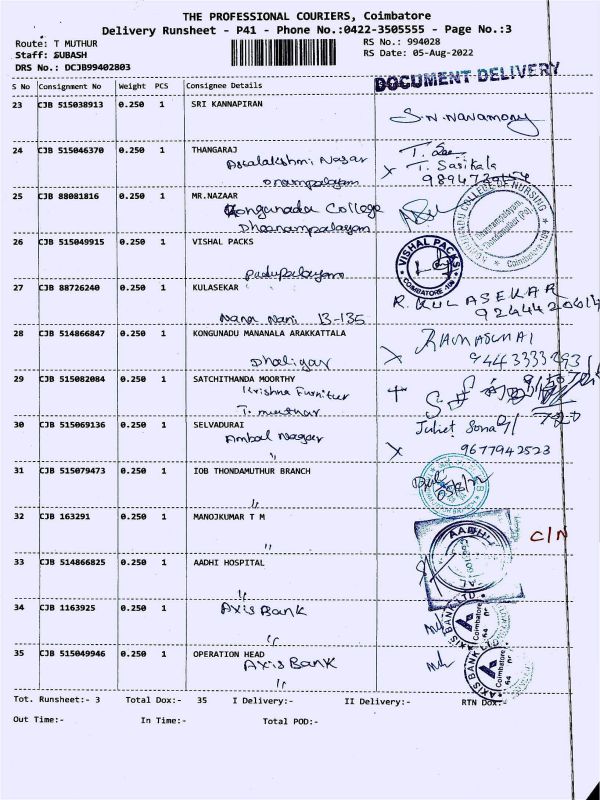 THE PROFESSIONAL COURIERS, Coimbatore
Delivery Runsheet - P41 - Phone No.:0422-3505555 - Page No.:3
Route: T MUTHUR RS No.: 994028
Staff: SUBASH RS Date: 05-Aug-2022
DRS No.: DCJB99402803
DOCUMENT DELIVERY
S No Consignment No Weight PCS Consignee Details
23 CJB 515038913 0.250 1 SRI KANNAPIRAN
S.N. Navamony
24 CJB 515046370 0.250 1 THANGARAJ
T. Sasikala
25 CJB 88081816 0.250 1 MR.NAZAAR
Kongunadu College
Dhaanampalayam
KONGUNADU COLLEGE OF NURSING
26 CJB 515049915 0.250 1 VISHAL PACKS
Pudupalayam
VISHAL PACKS
COIMBATORE
27 CJB 88726240 0.250 1 KULASEKAR
Nana Nani B-135
R. KULASEKAR
28 CJB 514866847 0.250 1 KONGUNADU MANANALA ARAKKATTALA
Dhaliyur
29 CJB 515082084 0.250 1 SATCHITHANDA MOORTHY
Krishna Furnitur
T. muthur
30 CJB 515069136 0.250 1 SELVADURAI
Ambal Nagar
Juliet Sona
9677942523
31 CJB 515079473 0.250 1 IOB THONDAMUTHUR BRANCH
"
32 CJB 163291 0.250 1 MANOJKUMAR T M
"
C/N
33 CJB 514866825 0.250 1 AADHI HOSPITAL
"
AADHI
34 CJB 1163925 0.250 1 Axis Bank
"
AXIS BANK LTD.
Coimbatore
35 CJB 515049946 0.250 1 OPERATION HEAD
Axis Bank
"
AXIS BANK LTD.
Coimbatore
Tot. Runsheet:- 3 Total Dox:- 35 I Delivery:- II Delivery:- RTN Dox:-
Out Time:- In Time:- Total POD:-